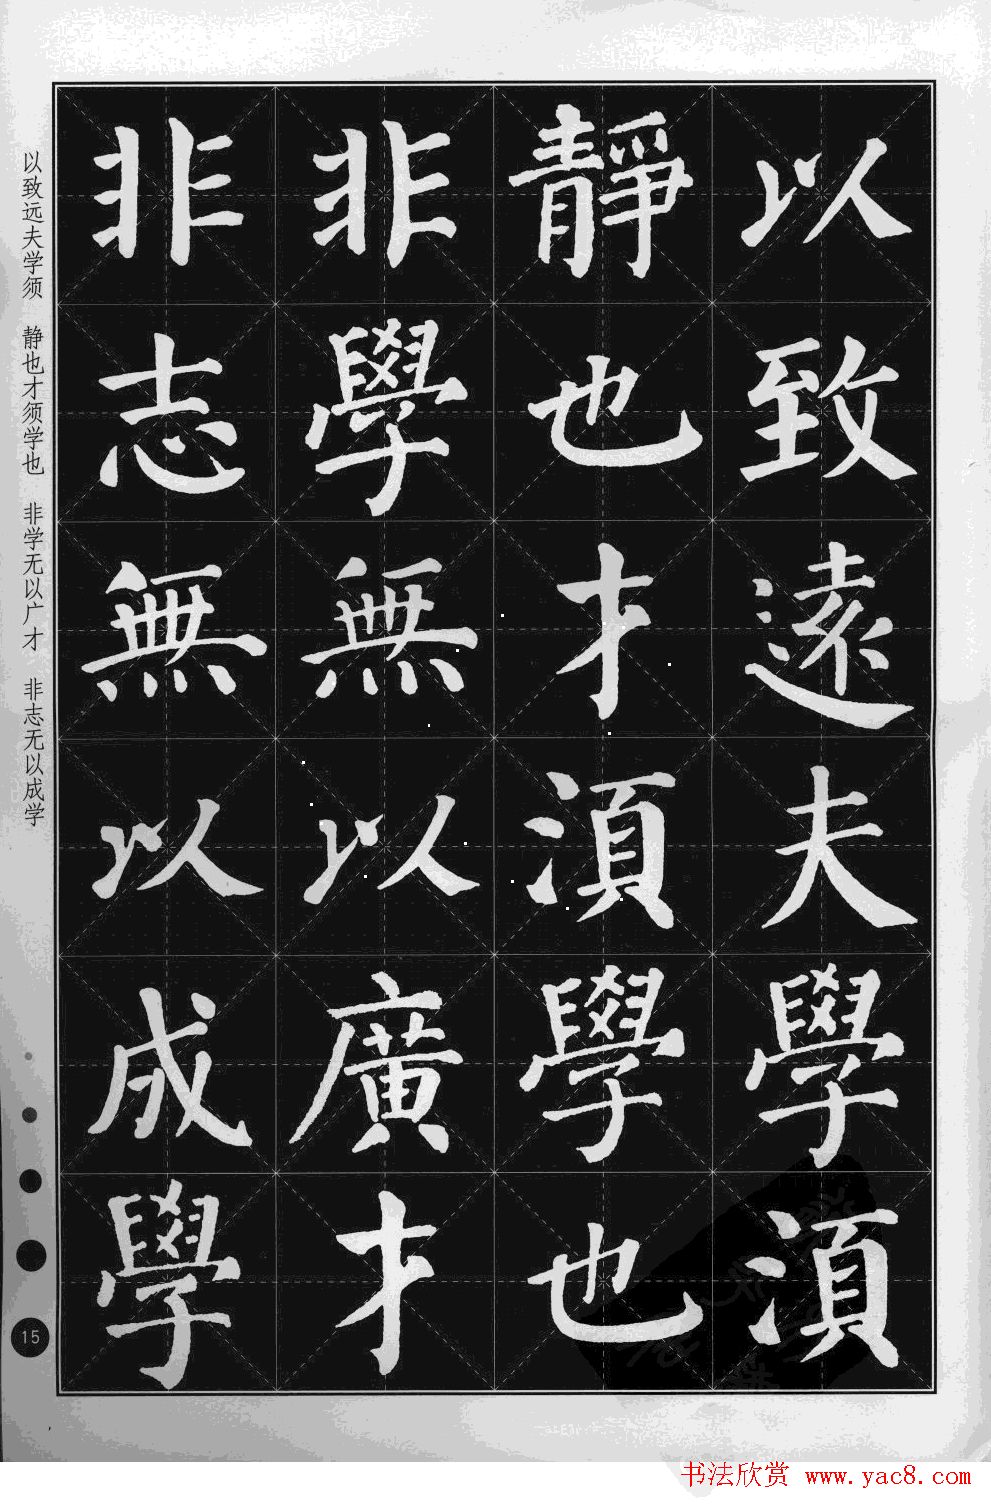 以致遠夫學湏
靜也才湏學也
非學無以廣才
非志無以成學
以致远夫学须 静也才须学也 非学无以广才 非志无以成学
15
书法欣赏 www.yac8.com